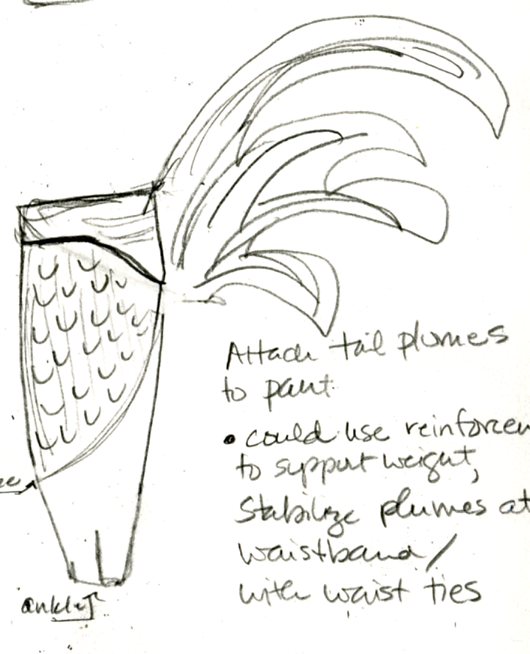 Attach tail plumes
to pant.
• could use reinforcem
to support weight,
stabilize plumes at
waistband/
with waist ties
ankle